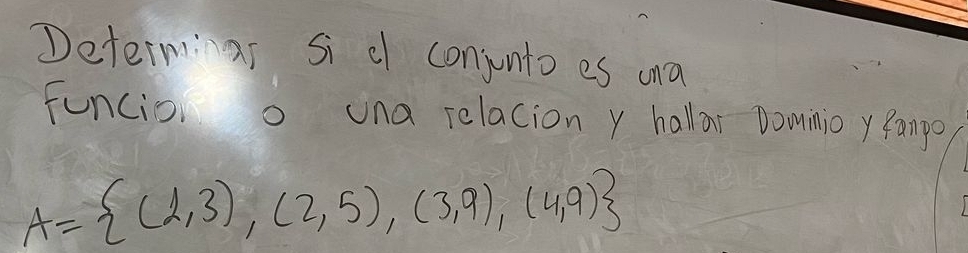 Determinar si el conjunto es una
función o una relación y hallar Dominio y Rango
A={(1,3),(2,5),(3,9),(4,9)}